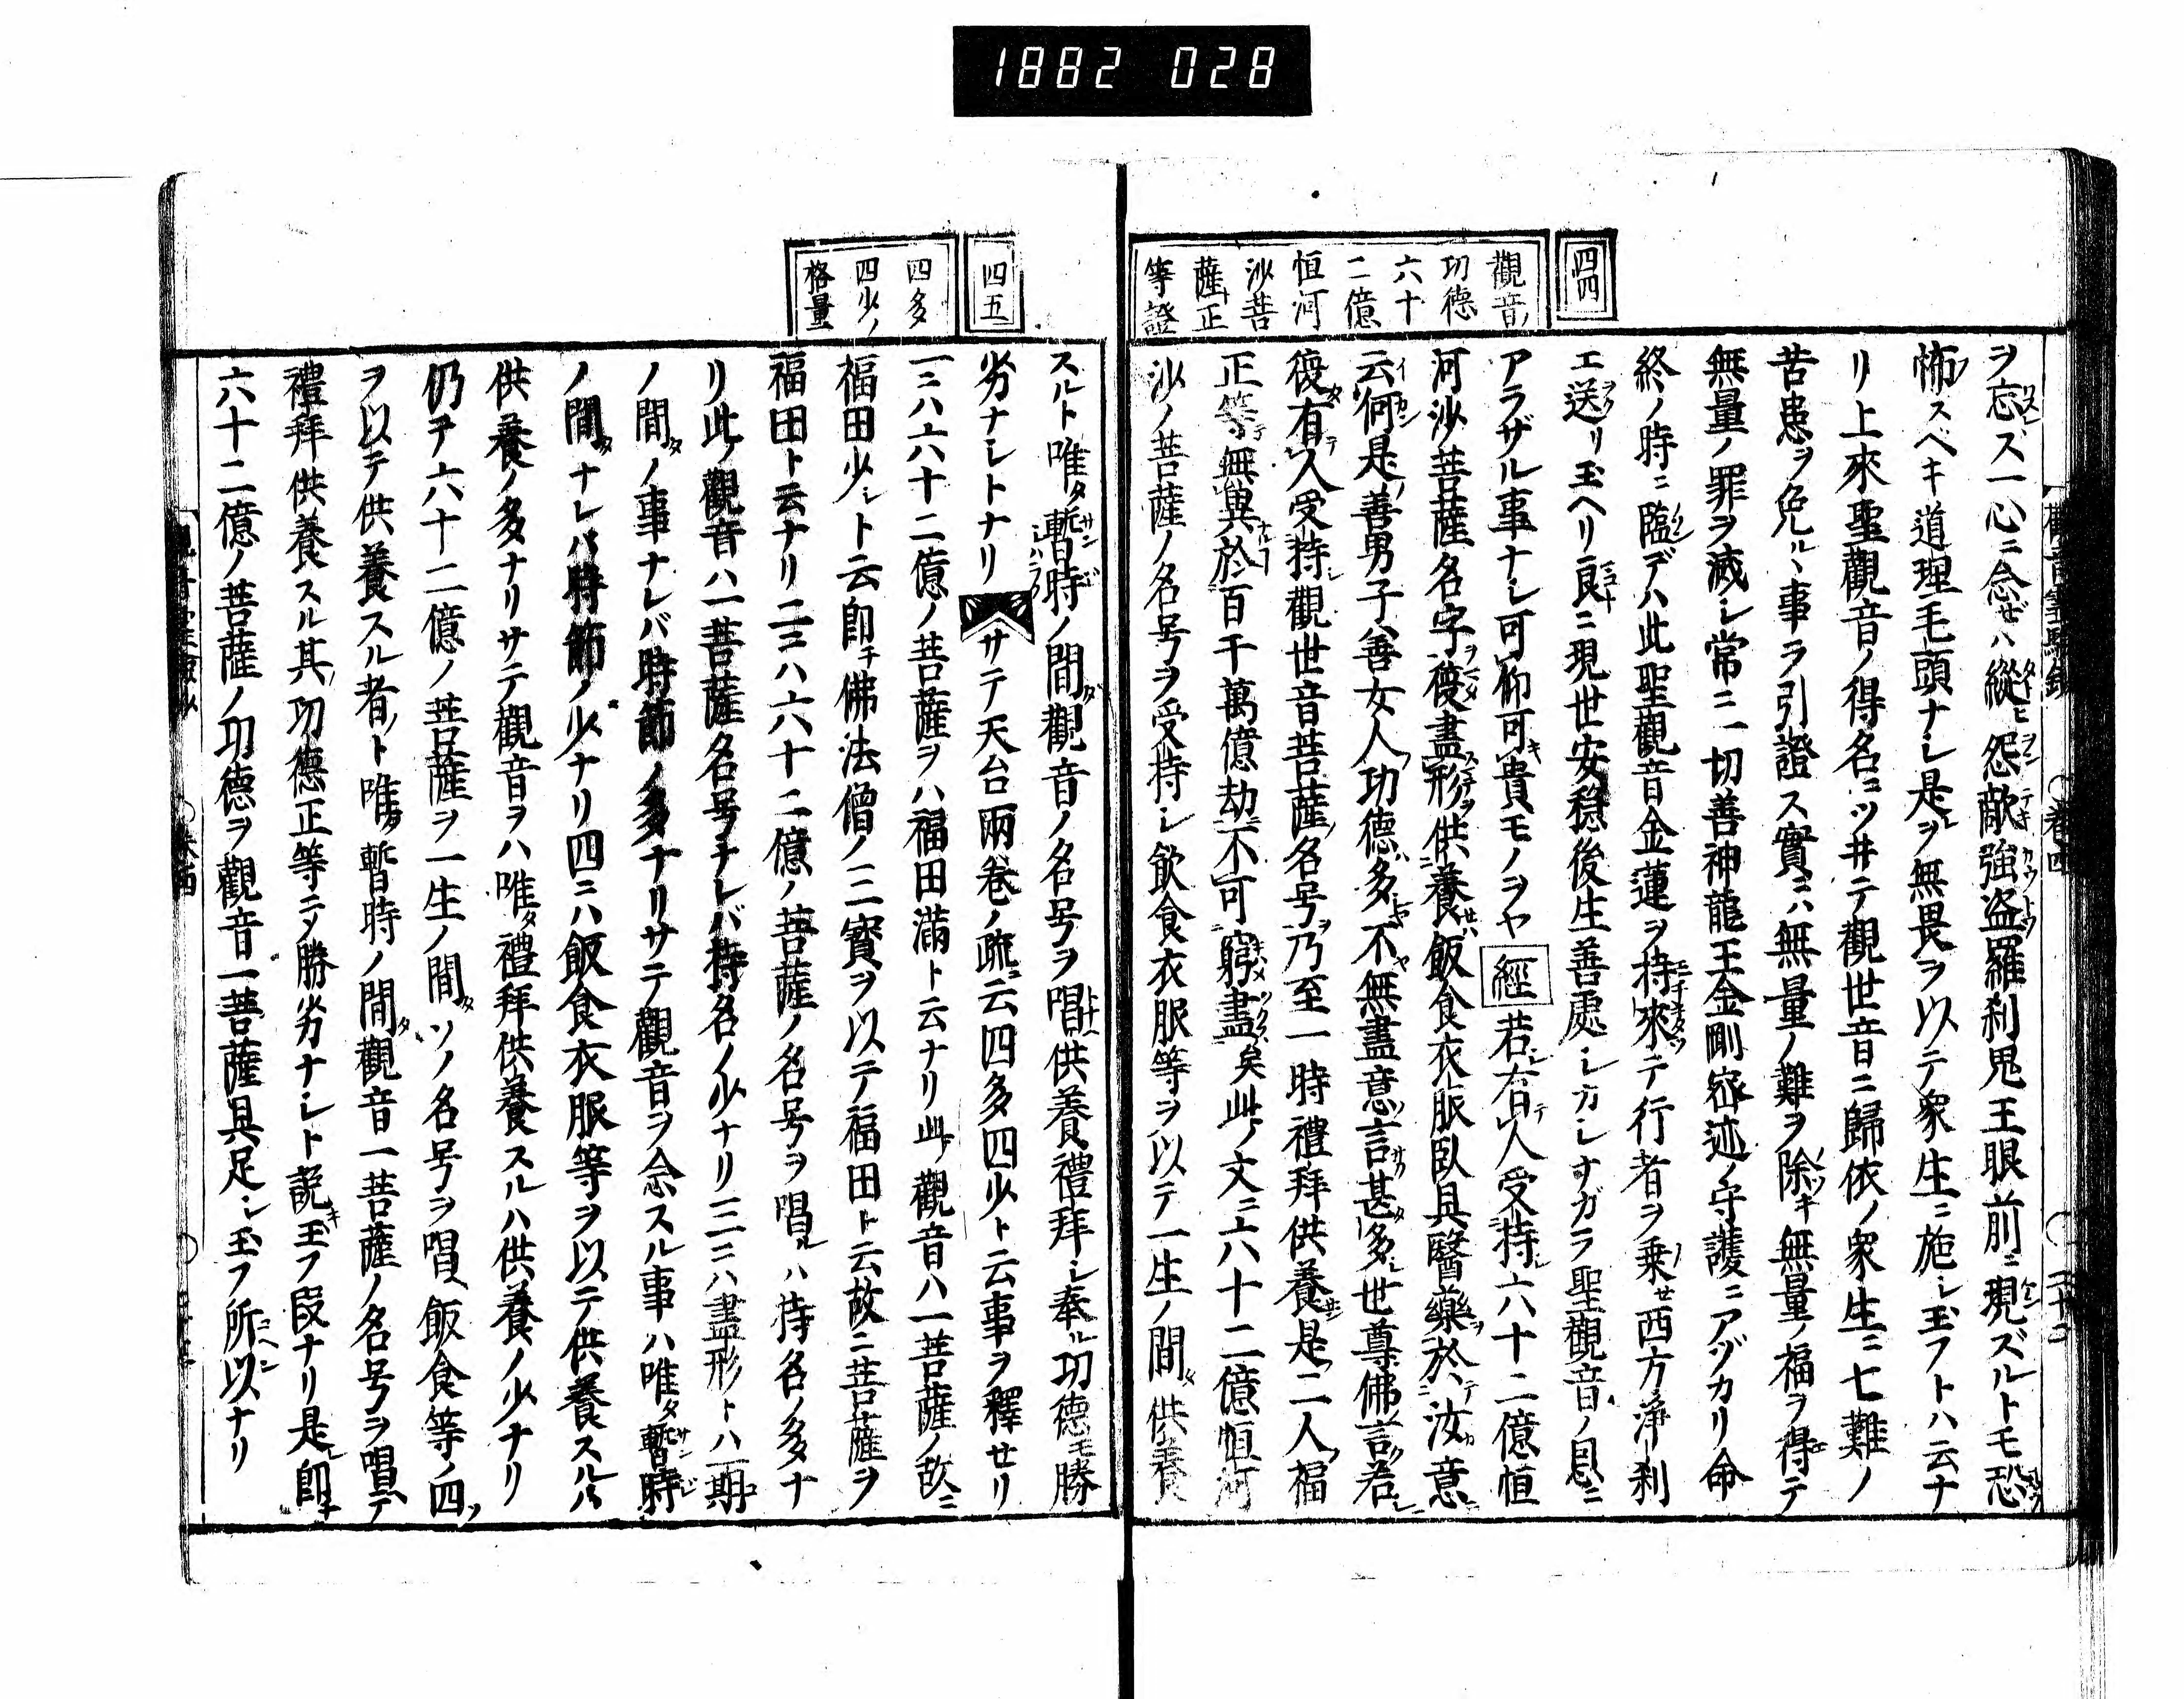 1882 028
四四
觀音ノ
功德
六十
二億
恒河
沙菩
薩正
等證
ヲ忘ズ一心ニ念ゼハ縱ヒ怨敵強盗羅刹鬼王眼前ニ現ズルトモ恐
怖スヘキ道理毛頭ナシ是ヲ無畏ヲ以テ衆生ニ施シ玉フトハ云ナ
リ上來聖觀音ノ得名ニツヰテ觀世音ニ歸依ノ衆生ニ七難ノ
苦患ヲ免ルヽ事ヲ引證ス實ニハ無量ノ難ヲ除キ無量ノ福ヲ得テ
無量ノ罪ヲ滅シ常ニ一切善神龍王金剛密迹ノ守護ニアヅカリ命
終ノ時ニ臨デハ此聖觀音金蓮ヲ持來テ行者ヲ乗セ西方淨刹
エ送リ玉ヘリ良ニ現世安穏後生善處シカシナガラ聖觀音ノ恩ニ
アラザル事ナシ可仰可貴モノヲヤ 經 若有人受持六十二億恒
河沙菩薩名字復盡形供養飯食衣服臥具醫藥於汝意
云何是善男子善女人功德多不無盡意言甚多世尊佛言若
復有人受持觀世音菩薩名号乃至一時禮拜供養是二人福
正等無異於百千萬億劫不可窮盡矣此文ニ六十二億恒河
沙ノ菩薩ノ名号ヲ受持シ飲食衣服等ヲ以テ一生ノ間供養
四五
四多
四少ノ
格量
スルト唯暫時ノ間觀音ノ名号ヲ唱供養禮拜シ奉ル功德ニ勝
劣ナシトナリ サテ天台兩巻ノ疏ニ云四多四少ト云事ヲ釋セリ
一ニハ六十二億ノ菩薩ヲハ福田滿ト云ナリ此觀音ハ一菩薩ノ故ニ
福田少シト云即チ佛法僧ノ三寳ヲ以テ福田ト云故ニ菩薩ヲ
福田ト云ナリ二ニハ六十二億ノ菩薩ノ名号ヲ唱ルハ持名ノ多ナ
リ此觀音ハ一菩薩名号ナレバ持名ノ少ナリ三ニハ盡形トハ一期
ノ間ノ事ナレバ時節ノ多ナリサテ觀音ヲ念スル事ハ唯暫時
ノ間ナレバ時節ノ少ナリ四ニハ飯食衣服等ヲ以テ供養スルハ
供養ノ多ナリサテ觀音ヲハ唯禮拜供養スルハ供養ノ少ナリ
仍テ六十二億ノ菩薩ヲ一生ノ間ソノ名号ヲ唱、飯食等ノ四
ヲ以テ供養スル者ト唯暫時ノ間觀音一菩薩ノ名号ヲ唱テ
禮拜供養スル其功德正等ニノ勝劣ナシト説玉フ段ナリ是即
六十二億ノ菩薩ノ功德ヲ觀音一菩薩具足シ玉フ所以ナリ